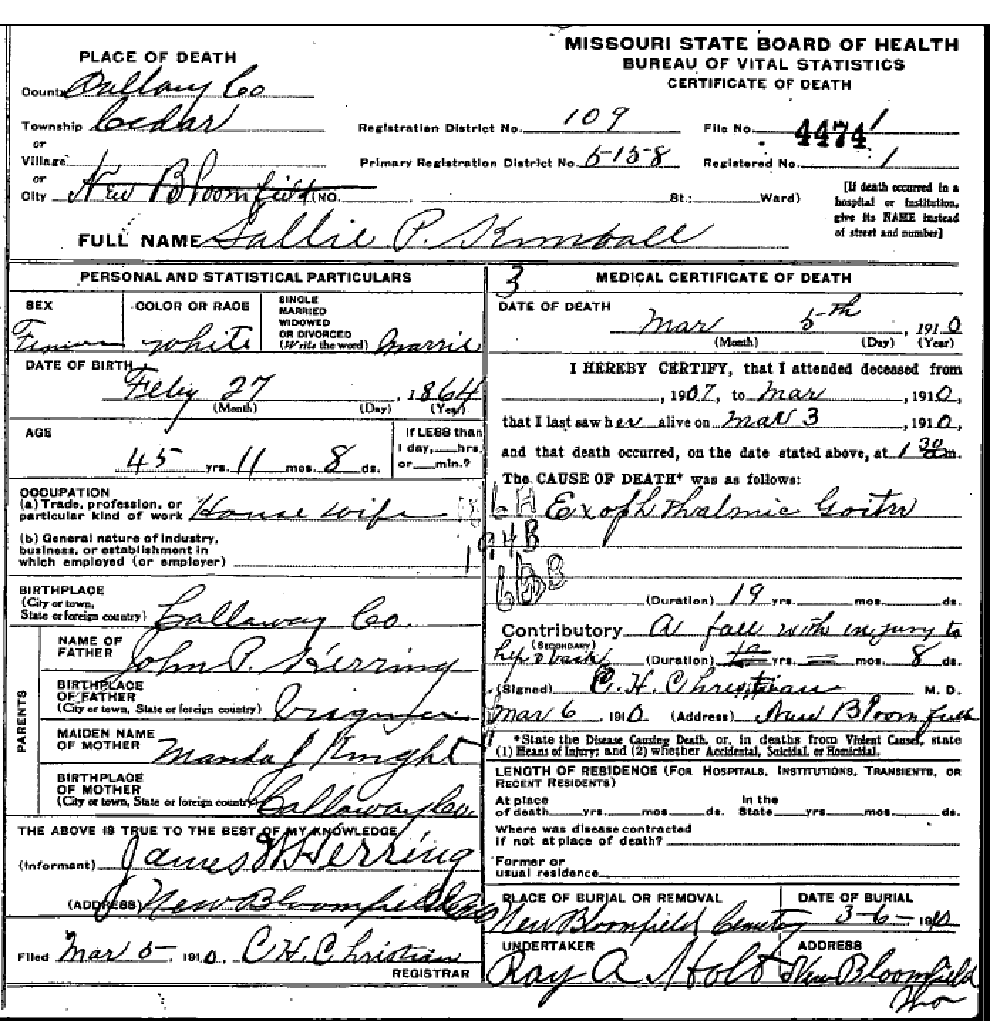 MISSOURI STATE BOARD OF HEALTH
BUREAU OF VITAL STATISTICS
CERTIFICATE OF DEATH
PLACE OF DEATH
County Callaway Co
Township Cedar
or
Village
or
City New Bloomfield (NO. St.; Ward)
Registration District No. 109 File No. 4474 1
Primary Registration District No. 5158 Registered No. 1
[If death occurred in a
hospital or institution,
give its NAME instead
of street and number]
FULL NAME Sallie P. Kimball
PERSONAL AND STATISTICAL PARTICULARS
SEX
COLOR OR RACE
white
SINGLE
MARRIED
WIDOWED
OR DIVORCED
(Write the word) Marrie
DATE OF BIRTH
Feby 27, 1864
(Month) (Day) (Year)
AGE
45 yrs. 11 mos. 8 ds.
If LESS than
1 day, hrs.
or min.?
OCCUPATION
(a) Trade, profession, or
particular kind of work House wife
(b) General nature of industry,
business, or establishment in
which employed (or employer)
BIRTHPLACE
(City or town,
State or foreign country) Callaway Co.
PARENTS
NAME OF
FATHER John P. Herring
BIRTHPLACE
OF FATHER
(City or town, State or foreign country) Virginia
MAIDEN NAME
OF MOTHER Manda J Knight
BIRTHPLACE
OF MOTHER
(City or town, State or foreign country) Callaway Co.
THE ABOVE IS TRUE TO THE BEST OF MY KNOWLEDGE
(Informant) James W Herring
(ADDRESS) New Bloomfield Mo
Filed Mar 5 1910. C H Christian
REGISTRAR
3 MEDICAL CERTIFICATE OF DEATH
DATE OF DEATH
Mar 5th, 1910
(Month) (Day) (Year)
I HEREBY CERTIFY, that I attended deceased from
, 1907, to Mar , 1910,
that I last saw her alive on Mar 3 1910,
and that death occurred, on the date stated above, at 1 30 am.
The CAUSE OF DEATH* was as follows:
Exophthalmic Goitre
(Duration) 19 yrs. mos. ds.
Contributory A fall with injury to
(SECONDARY)
hip & back (Duration) yrs. mos. 8 ds.
(Signed) C. H. Christian M. D.
Mar 6, 1910 (Address) New Bloomfield
*State the Disease Causing Death, or, in deaths from Violent Causes, state
(1) Means of Injury; and (2) whether Accidental, Suicidal, or Homicidal.
LENGTH OF RESIDENCE (FOR HOSPITALS, INSTITUTIONS, TRANSIENTS, OR
RECENT RESIDENTS)
At place
of death yrs. mos. ds. In the
State yrs. mos. ds.
Where was disease contracted
if not at place of death?
Former or
usual residence
PLACE OF BURIAL OR REMOVAL
New Bloomfield Cemetery
DATE OF BURIAL
3-6-1910
UNDERTAKER
Ray A Holt
ADDRESS
New Bloomfield
Mo